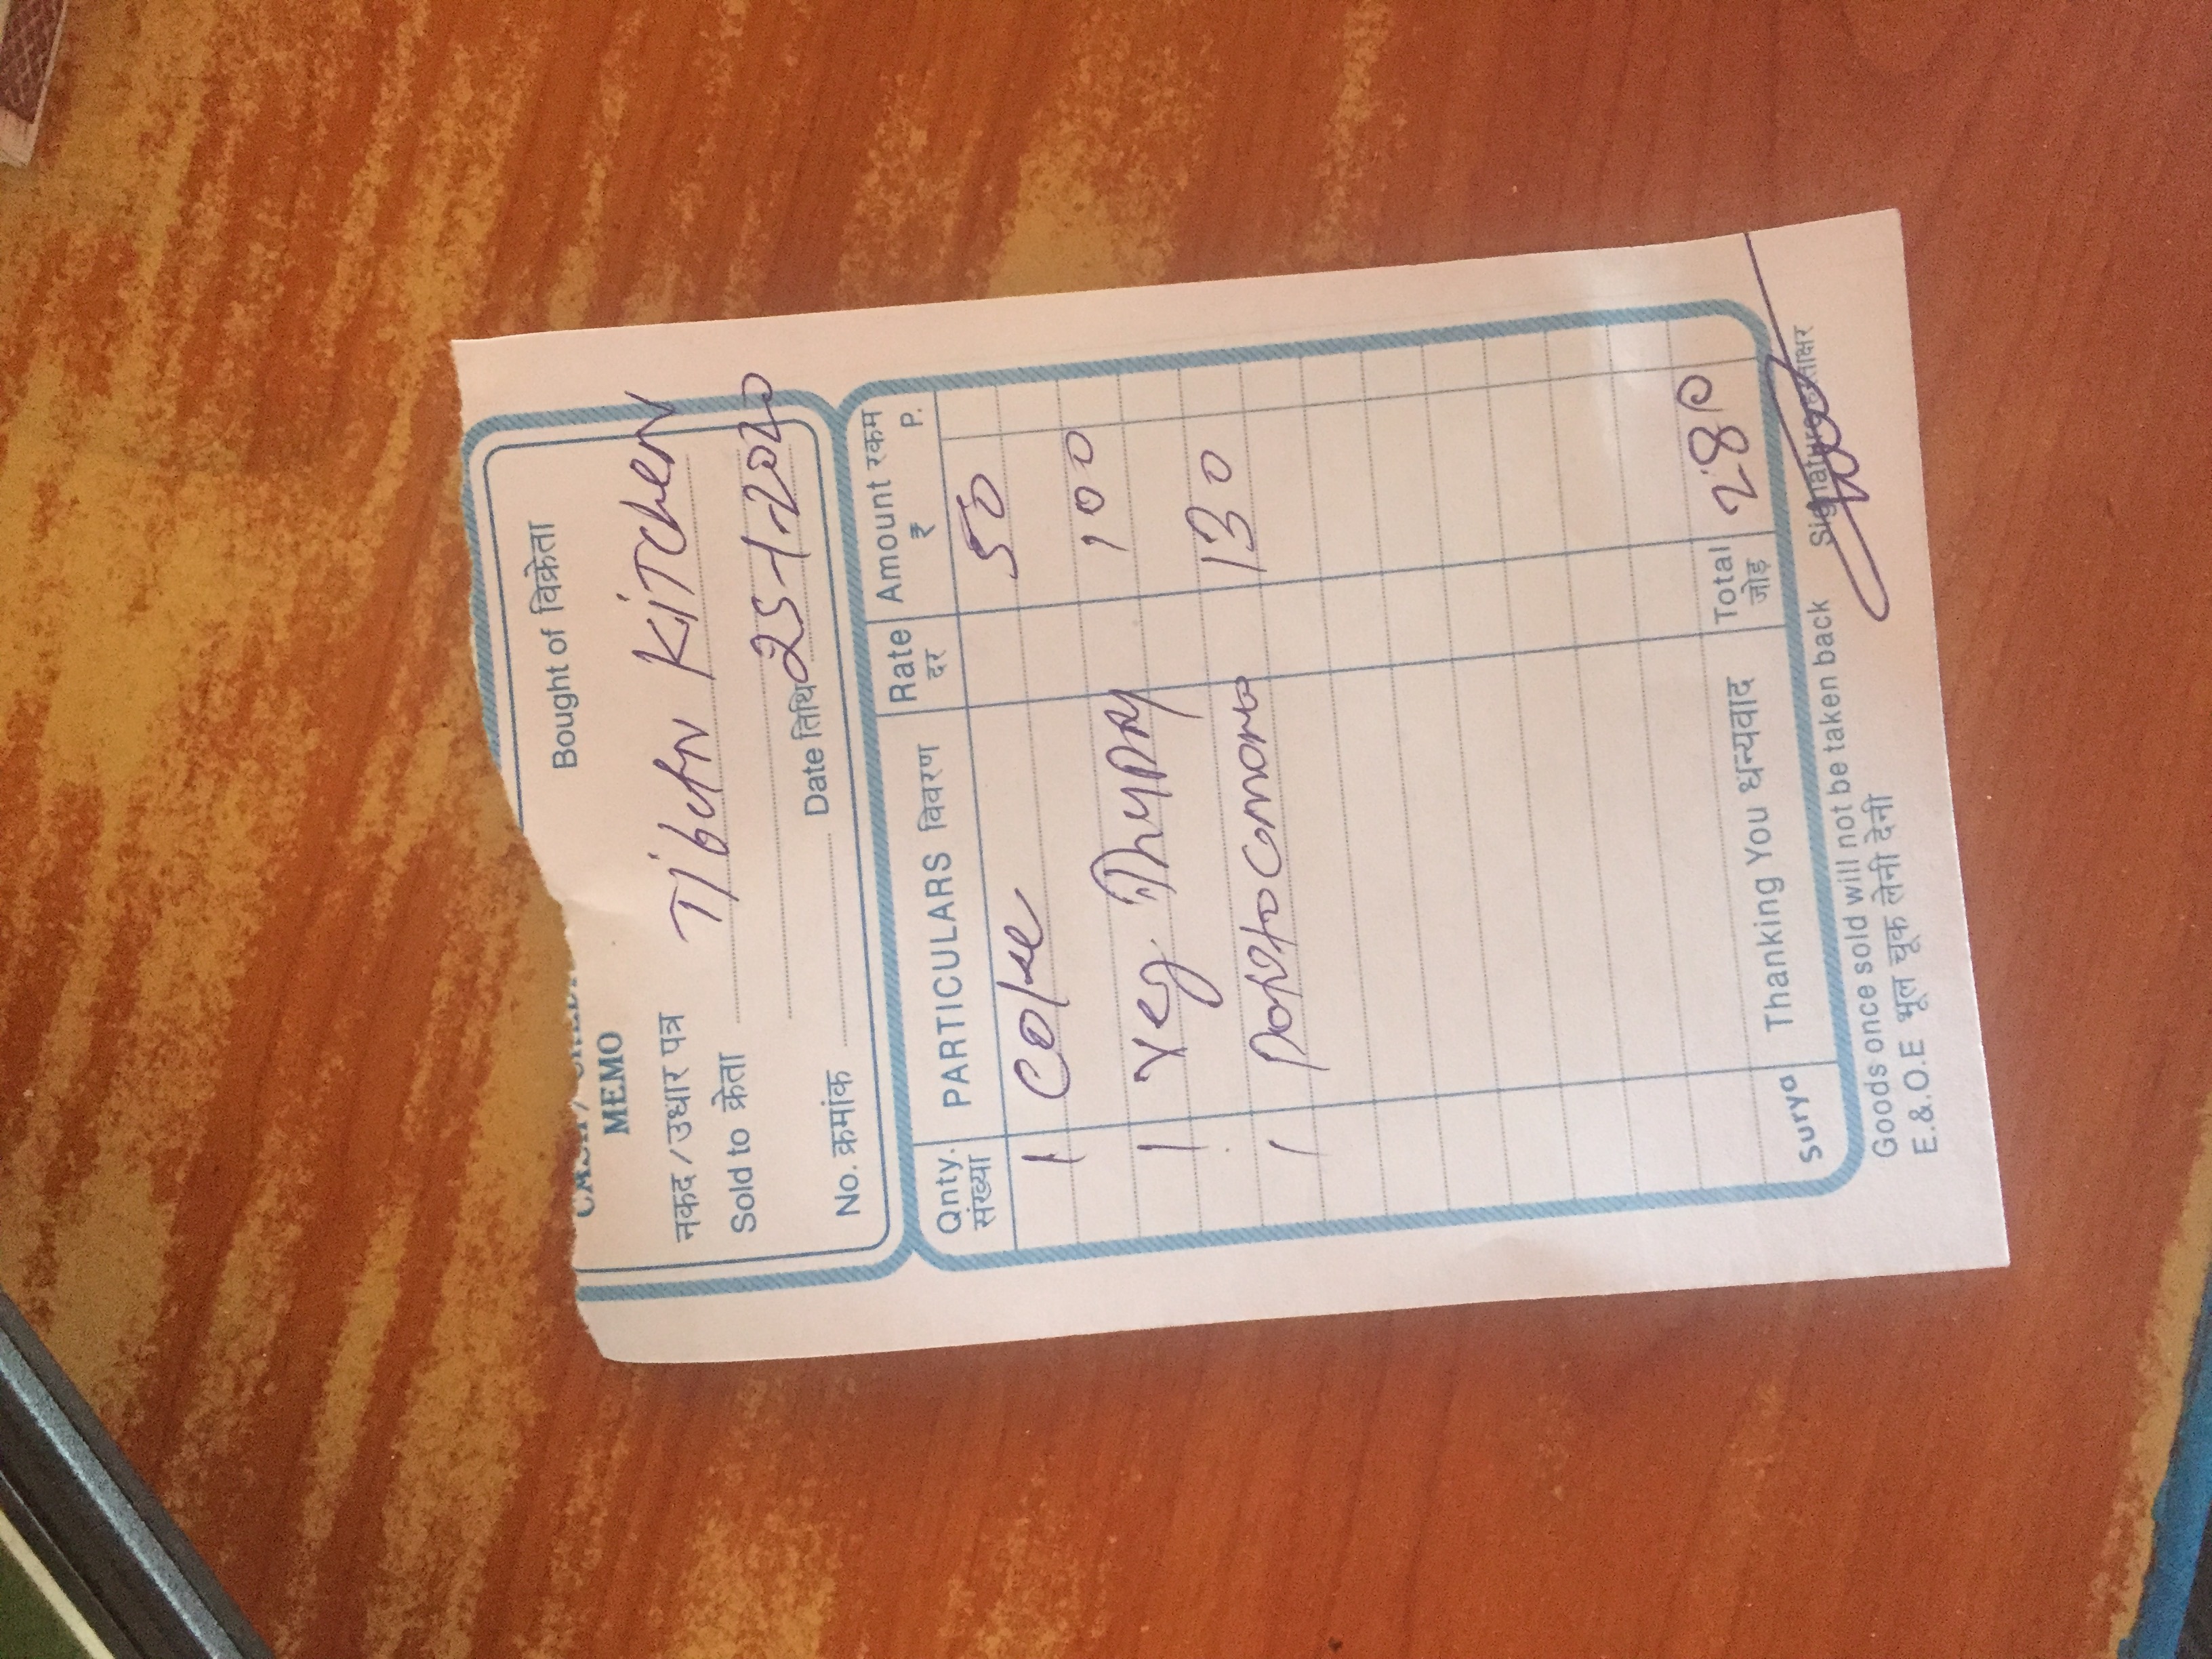 MEMO
Bought of विक्रेता
नकद / उधार पत्र
Tibetn KiTchen
Sold to क्रेता
No. क्रमांक Date तिथि 25-1-2020
Qnty. PARTICULARS विवरण Rate Amount रकम
संख्या दर ₹ P.
1 Coke 50
1 Veg. Thupa 100
1 130
Surya Thanking You धन्यवाद Total 280
जोड़
Goods once sold will not be taken back Signature हस्ताक्षर
E.&.O.E भूल चूक लेनी देनी